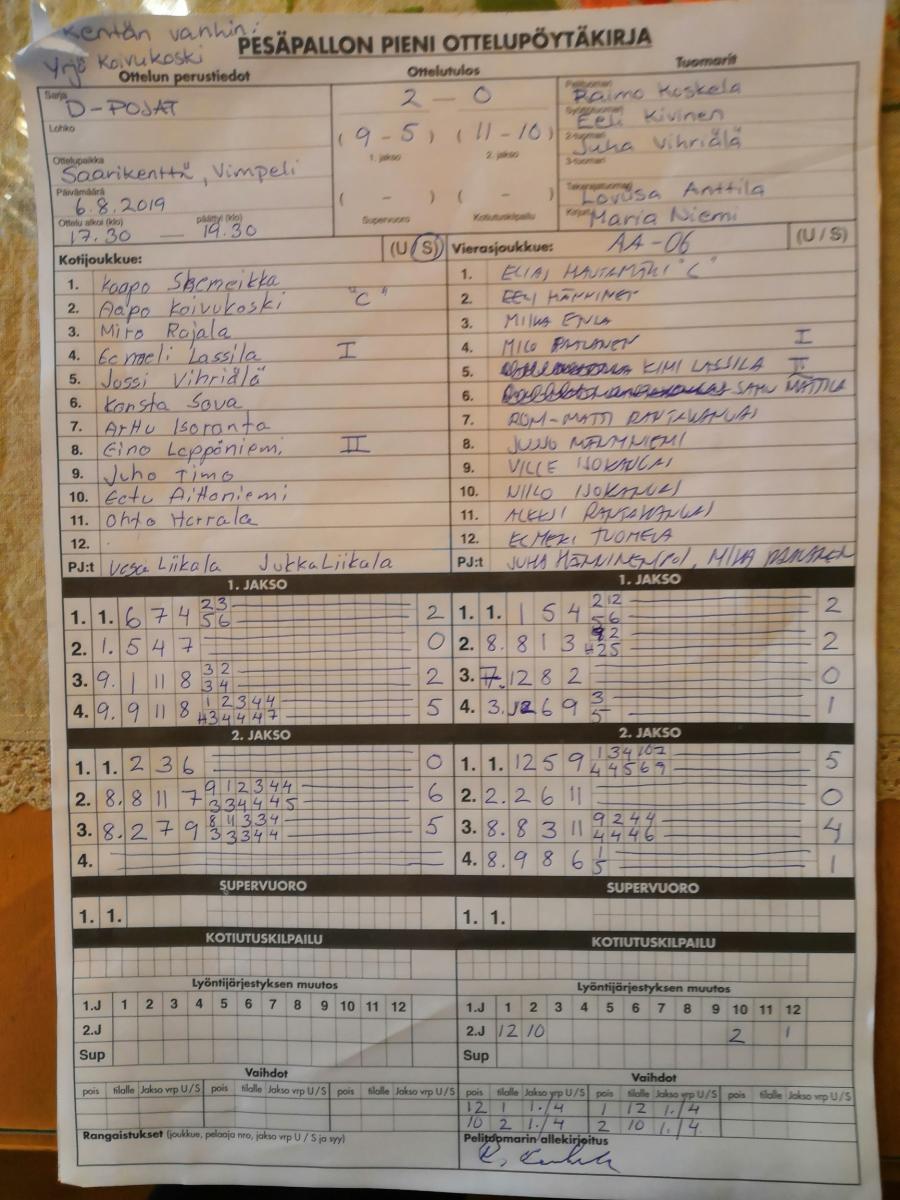 Kentän vanhin:
Yrjö Koivukoski
PESÄPALLON PIENI OTTELUPÖYTÄKIRJA
Ottelun perustiedot Ottelutulos Tuomarit
Sarja
D-POJAT
Lohko
Ottelupaikka
Saarikenttä, Vimpeli
Päivämäärä
6.8.2019
Ottelu alkoi (klo) päättyi (klo)
17.30 — 19.30
2 — 0
(9 - 5) (11 - 10)
1. jakso 2. jakso
( - ) ( - )
Supervuoro Kotiutuskilpailu
Pelituomari
Raimo Koskela
Syöttötuomari
Eeli Kivinen
2-tuomari
Juha Vihriälä
3-tuomari
Takarajatuomari
Loviisa Anttila
Kirjuri
Maria Niemi
Kotijoukkue: (U/S)
1. Kaapo Skemeikka
2. Aapo Koivukoski "C"
3. Miro Rajala
4. Eemeli Lassila I
5. Jussi Vihriälä
6. Konsta Sova
7. Arttu Isoranta
8. Eino Leppäniemi II
9. Juho Timo
10. Eetu Aittoniemi
11. Ohto Harrala
12.
PJ:t Vesa Liikala Jukka Liikala
Vierasjoukkue: AA-06 (U/S)
1. ELIAS HAUTAMÄKI "C"
2. EELI HÄNNINEN
3. MIIKA
4. MILO I
5. KIMI LASSILA II
6. SAMU MATTILA
7. RANTAKANGAS
8. JUUSO
9. VILLE ISOKANGAS
10. NIILO ISOKANGAS
11. ALEKSI RANTAKANGAS
12. EEMELI TUOMELA
PJ:t JUHA HÄNNINEN MIKA
1. JAKSO
1. 1. 6 7 4 2 3 2
5 6
2. 1. 5 4 7 0
3. 9. 1 11 8 3 2 2
3 4
4. 9. 9 11 8 1 2 3 4 4 5
H 3 4 4 4 7
1. JAKSO
1. 1. 1 5 4 2 12 2
5 6
2. 8. 8 1 3 2 2
H 2 5
3. 7. 12 8 2 0
4. 3. 12 6 9 3 1
5
2. JAKSO
1. 1. 2 3 6 0
2. 8. 8 11 7 9 1 2 3 4 4 6
3 3 4 4 4 5
3. 8. 2 7 9 8 11 3 3 4 5
3 3 3 4 4
4.
2. JAKSO
1. 1. 12 5 9 1 3 4 10 7 5
4 4 5 6 9
2. 2. 2 6 11 0
3. 8. 8 3 11 9 2 4 4 4
4 4 4 6
4. 8. 9 8 6 1 1
5
SUPERVUORO
1. 1.
SUPERVUORO
1. 1.
KOTIUTUSKILPAILU
KOTIUTUSKILPAILU
Lyöntijärjestyksen muutos
1.J 1 2 3 4 5 6 7 8 9 10 11 12
2.J
Sup
Lyöntijärjestyksen muutos
1.J 1 2 3 4 5 6 7 8 9 10 11 12
2.J 12 10 2 1
Sup
Vaihdot
pois tilalle Jakso vrp U/S pois tilalle Jakso vrp U/S pois tilalle Jakso vrp U/S
Rangaistukset (joukkue, pelaaja nro, jakso vrp U / S ja syy)
Vaihdot
pois tilalle Jakso vrp U/S pois tilalle Jakso vrp U/S pois tilalle Jakso vrp U/S
12 1 1./4 1 12 1./4
10 2 1./4 2 10 1./4
Pelituomarin allekirjoitus